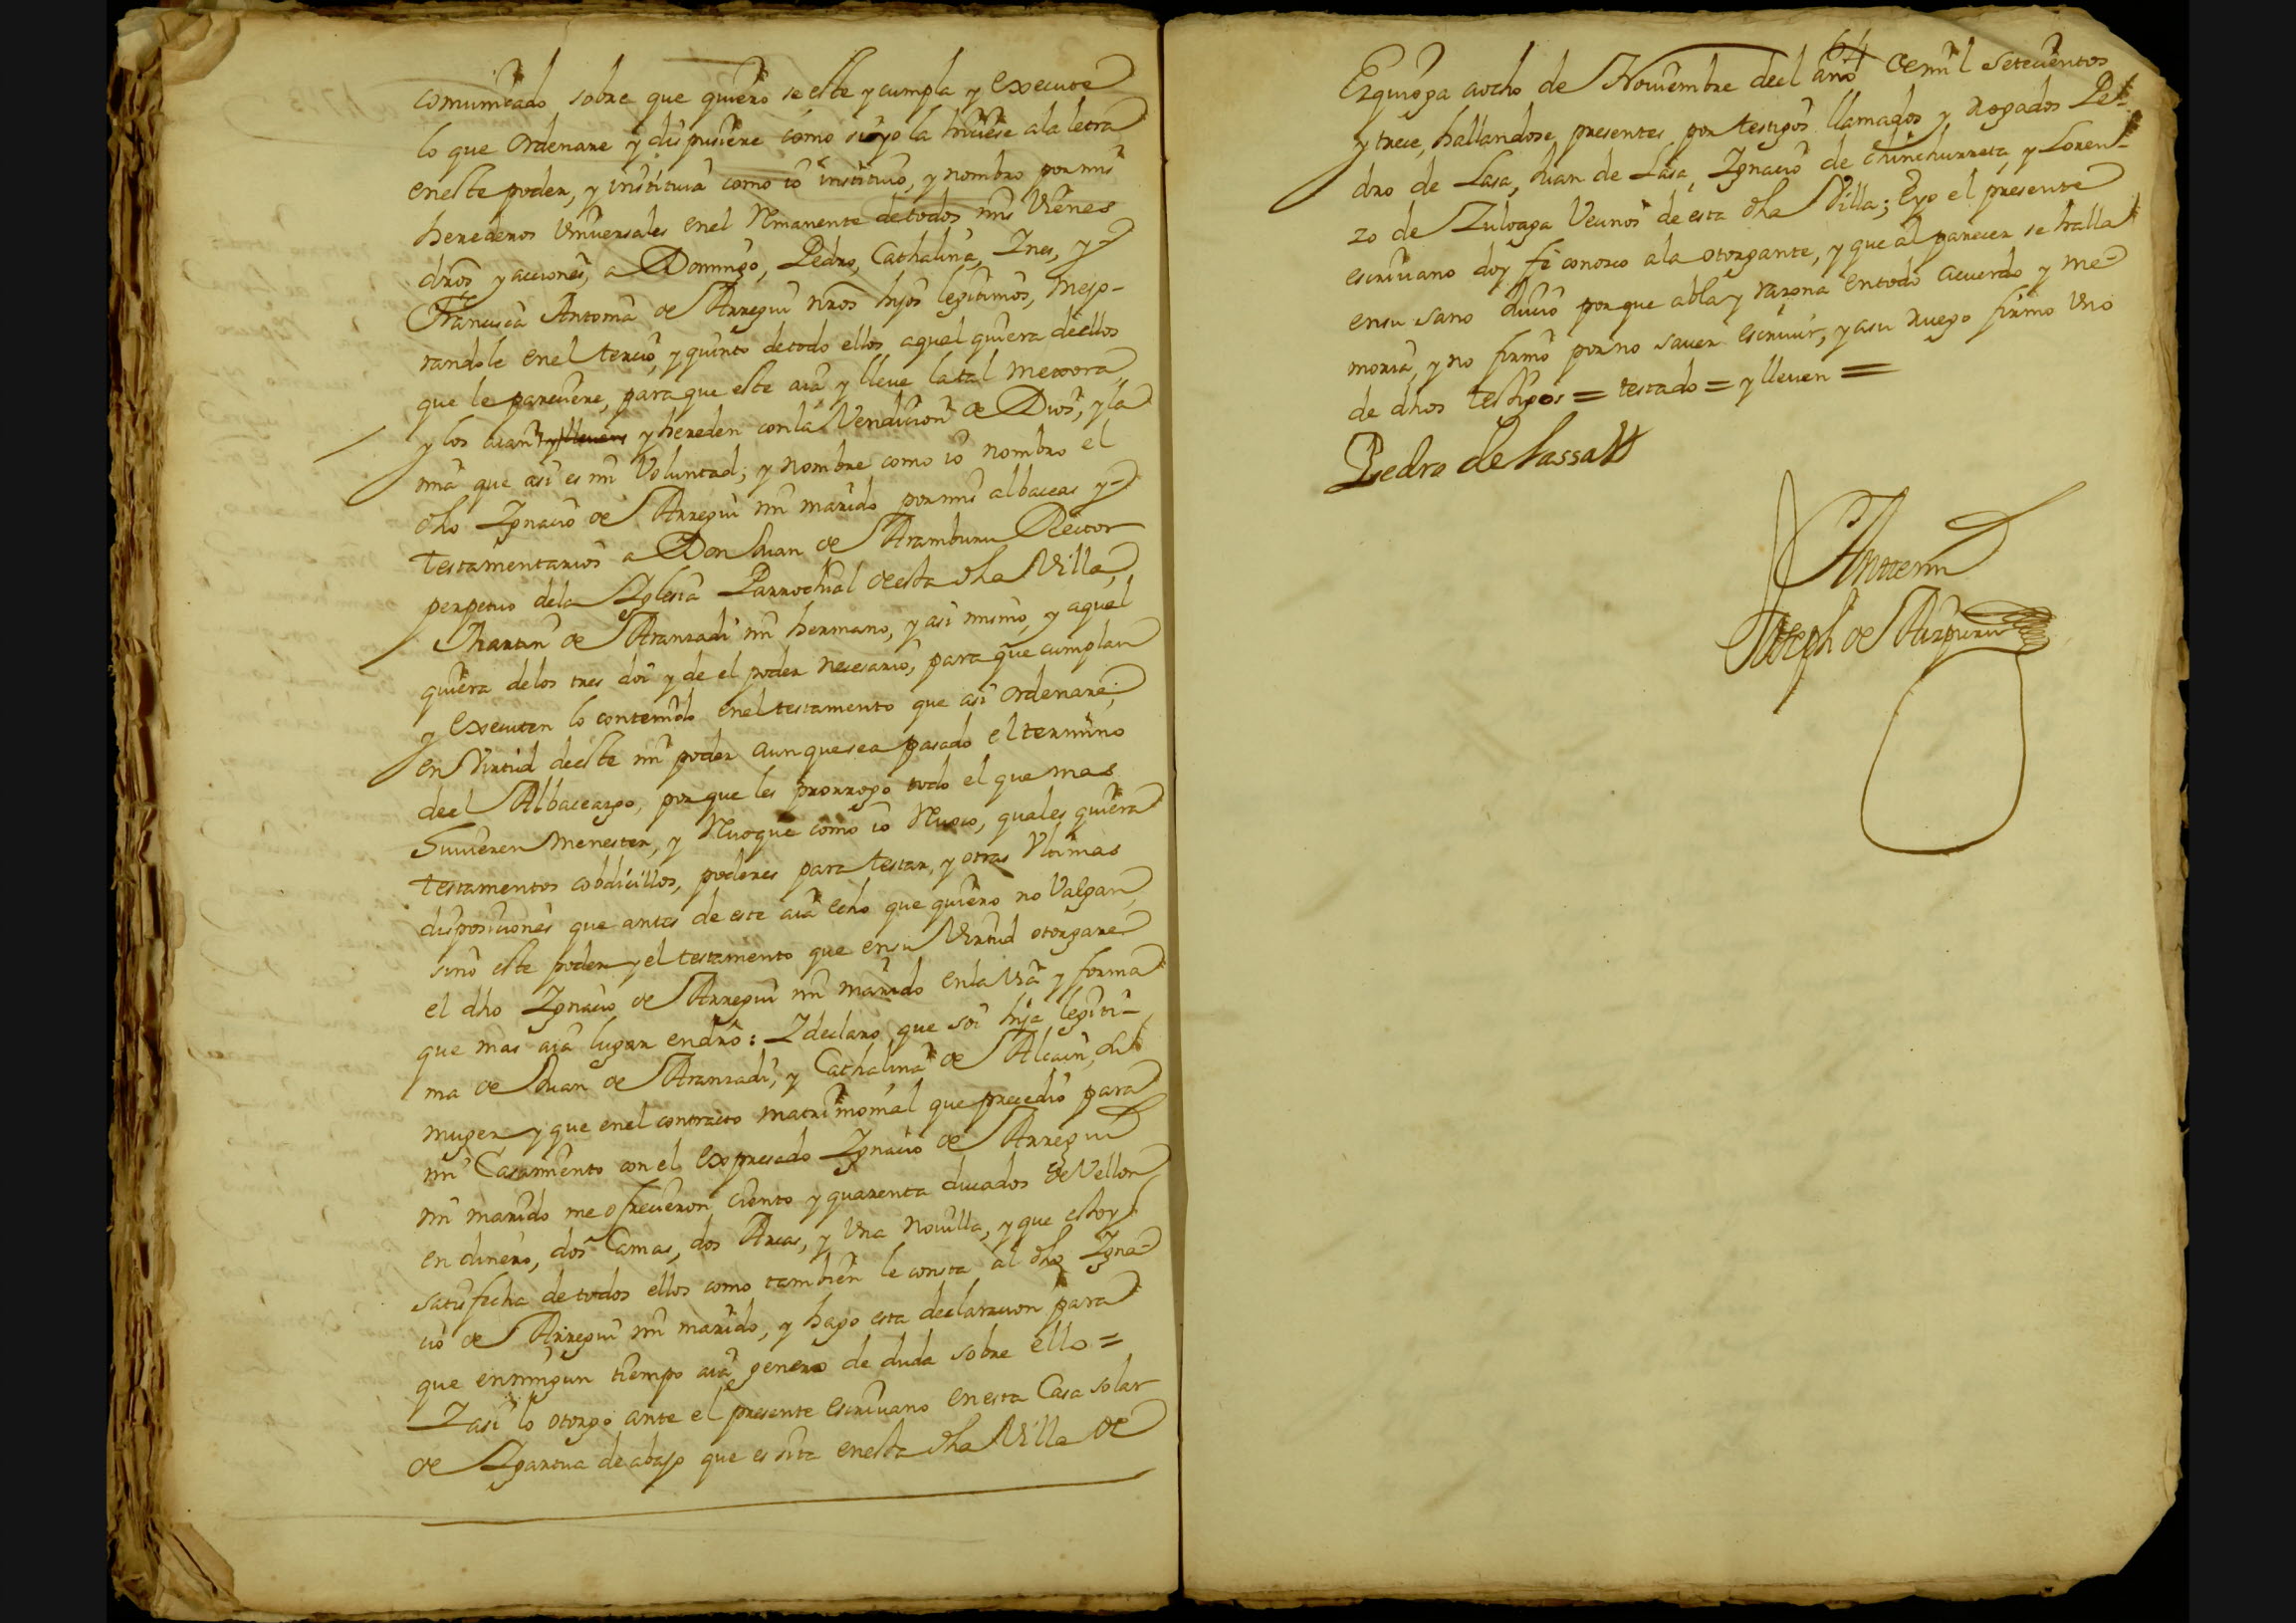 comunicado sobre que quiero se este y cumpla y execute
lo que ordenare y dispusiere como si yo la hiciese a la letra
en este poder, y instituia como io instituio, y nombro por mis
herederos universales en el remanente de todos mis vienes
dros y acciones, a Domingo, Pedro, Cathalina, Ines, y
Francisca Antonia de Arregui nros hijos legitimos, mejo-
randole en el tercio, y quinto de todo ellos aquel quiera de ellos
que le pareciere, para que este aia y lleve la tal mexora,
y los aian y lleven y hereden con la Vendicion de Dios, y la
mia que asi es mi Voluntad; y nombre como io nombro el
dho Ignacio de Arregui mi marido por mis albaceas y
testamentarios a Don Juan de Aramburu Retor
perpetuo de la Iglesia Parrochial de esta dha Villa,
Martin de Aranzadi mi hermano, y asi mismo, y aquel
quiera de los tres doi y de el poder necesario, para que cumplan
y executen lo contenido en el testamento que asi ordenare,
en Virtud de este mi poder aunque sea pasado el termino
de el Albaceazgo, porque les prorrogo todo el que mas
tuvieren menester, y revoque como io revoco, quales quiera
testamentos cobdicillos, poderes para testar, y otras Ultimas
disposiciones que antes de este aia echo que quiero no Valgan,
sino este poder y el testamento que en su Virtud otorgare
el dho Ignacio de Arregui mi marido en la Via y forma
que mas aia lugar en dro: I declaro que soi hija legiti-
ma de Juan de Aranzadi, y Cathalina de Alcain, su
muger y que en el contrato matrimonial que precedio para
mi Casamiento con el expresado Ignacio de Arregui
mi marido me ofrecieron ciento y quarenta ducados de Vellon
en dinero, dos Camas, dos Arcas, y Una novilla, y que estoy
satisfecha de todos ellos como tambien le consta al dho Igna-
cio de Arregui mi marido, y hago esta declaracion para
que en ningun tiempo aia genero de duda sobre ello =
I asi lo otorgo ante el presente escrivano en esta Casa solar
de Igartua de abajo que es sita en esta dha Villa de
64
Ezquioga a ocho de Noviembre de el año de mil setecientos
y trece, hallandose presentes por testigos llamados y rogados Pe-
dro de Lasa, Juan de Lasa, Ignacio de Chinchurreta, y Loren-
zo de Zuloaga Vecinos de esta dha Villa; E yo el presente
escrivano doy fe conosco a la otorgante, y que al parecer se halla
en su sano Juicio porque abla y razona en todo acuerdo y me-
moria, y no firmo por no saver escrivir, y a su ruego firmo Uno
de dhos testigos = testado = y lleven =
Pedro de Lassa
Ante mi
Joseph de Aizpuru